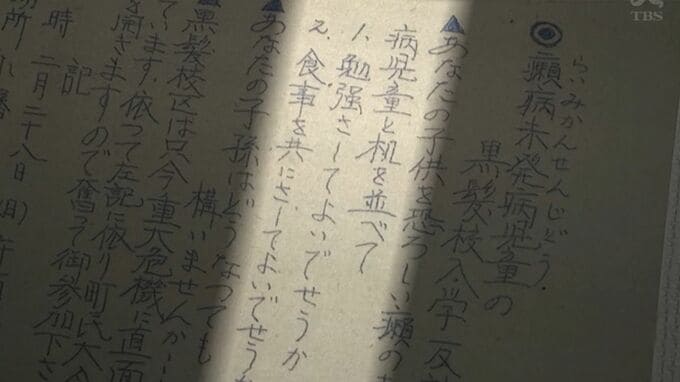 TBS
◎癩病未発病児童の
らいみかんせんじどう.
黒髪校入学反
▲あなたの子供を恐ろしい癩の
病児童と机を並べて
1. 勉強さしてよいでせうか
2. 食事を共にさしてよいでせうか
▲あなたの子孫はどうなっても
構いませんか
▲黒髪校区は只今重大危機に直面
しています.依って左記に依り町民大会
を開きますので奮って御参加下さ
記
時 二月二十八日(日)
場所